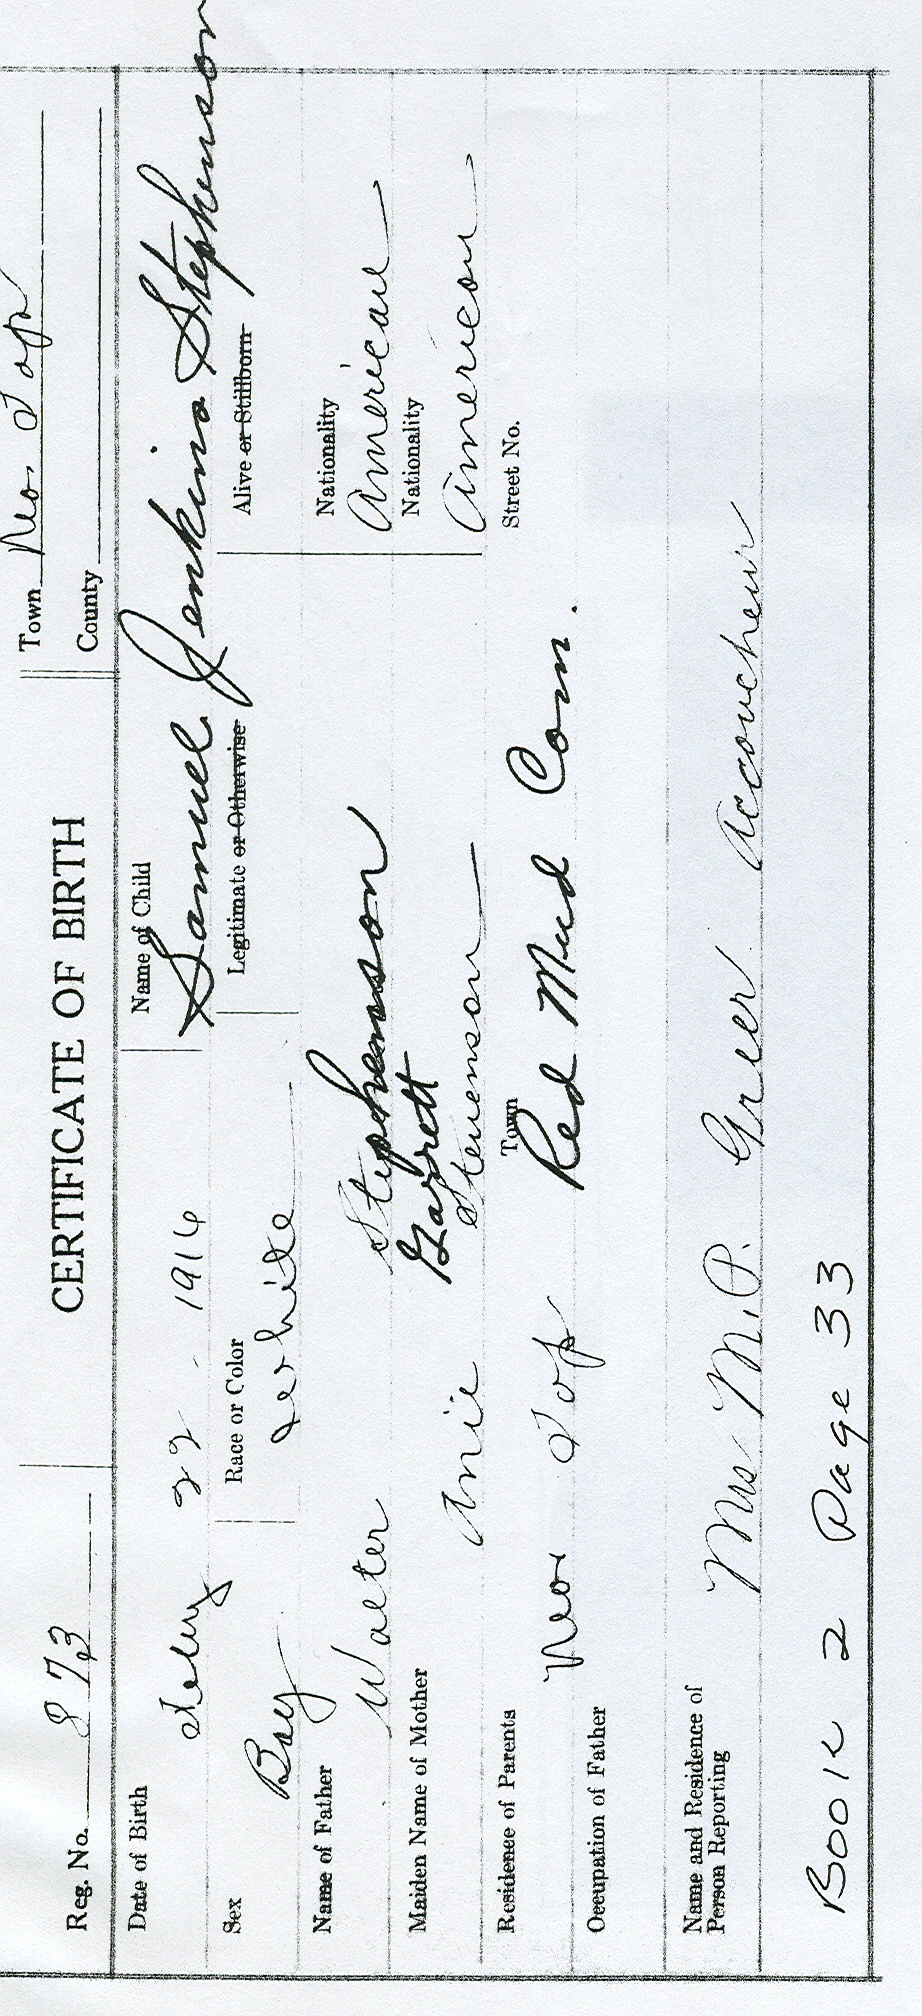 Reg. No. 873
CERTIFICATE OF BIRTH
Town
County
Date of Birth
22 - 1916
Name of Child
Samuel Jenkins Stephenson
Sex
Boy
Race or Color
White
Legitimate or Otherwise
Alive or Stillborn
Name of Father
Walter Stephenson
Nationality
American
Maiden Name of Mother
Garrett
Anie Stevenson
Nationality
American
Residence of Parents
Town
Red Mud Com.
Street No.
Occupation of Father
Name and Residence of
Person Reporting
Mrs M. P. Greer Accoucheur
Book 2 Page 33